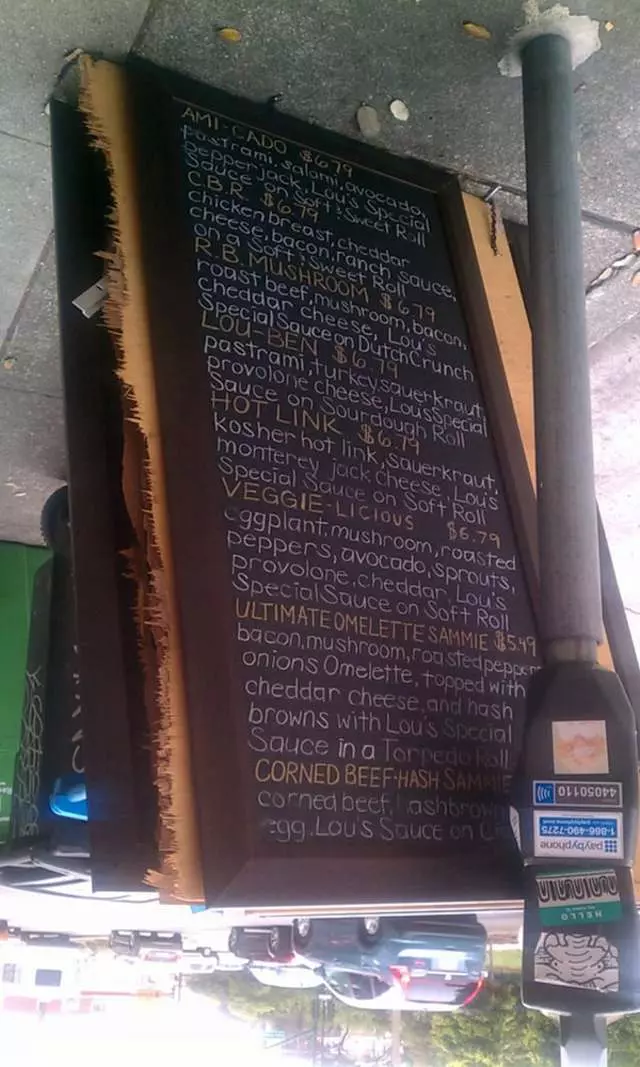 AMI-CADO $6.79
pastrami, salami, avocado,
pepper jack, Lou's Special
Sauce on Soft & Sweet Roll
C.B.R. $6.79
chicken breast, cheddar
cheese, bacon, ranch sauce,
on a Soft & Sweet Roll
R.B. MUSHROOM $6.79
roast beef, mushroom, bacon,
cheddar cheese, Lou's
Special Sauce on Dutch Crunch
LOU-BEN $6.79
pastrami, turkey, sauerkraut,
provolone cheese, Lou's Special
Sauce on Sourdough Roll
HOT LINK $6.79
kosher hot link, sauerkraut,
monterey jack cheese, Lou's
Special Sauce on Soft Roll
VEGGIE-LICIOUS $6.79
eggplant, mushroom, roasted
peppers, avocado, sprouts,
provolone, cheddar, Lou's
Special Sauce on Soft Roll
ULTIMATE OMELETTE SAMMIE $5.49
bacon, mushroom, roasted pepper
onions Omelette, topped with
cheddar cheese, and hash
browns with Lou's Special
Sauce in a Torpedo Roll
CORNED BEEF-HASH SAMMIE
corned beef, hashbrown
egg, Lou's Sauce on
44050110
paybyphone
1-866-490-7275
HELLO